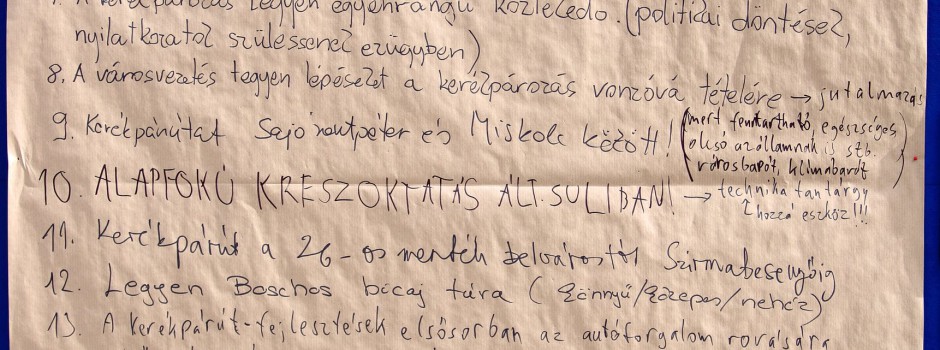 7. A kerékpározás legyen egyenrangú közlekedő. (politikai döntések,
nyilatkozatok szülessenek ezügyben)
8. A városvezetés tegyen lépéseket a kerékpározás vonzóvá tételére → jutalmazás
9. Kerékpárutat Sajókeresztúr és Miskolc között! (mert fenntartható, egészséges,
olcsó az államnak is stb.
városbarát, klímabarát)
10. ALAPFOKÚ KRESZOKTATÁS ÁLT. SULIBAN! → technika tantárgy
hozzá eszköz!!!
11. Kerékpárút a 26-os mentén belvárostól Szirmabesenyőig
12. Legyen Boschos bicaj túra (könnyű/közepes/nehéz)
13. A kerékpárút-fejlesztések elsősorban az autóforgalom rovására